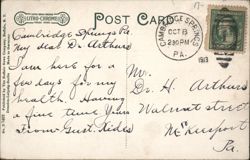 LITHO-CHROME
POST CARD
CAMBRIDGE SPRINGS
OCT 8
2 30 PM
PA.
1913
Cambridge Springs Pa.
My dear Dr. Arthurs
I am here for a
few days for my
health. Having
a fine time. Yours
From Gust. Kides
Mr.
Dr. H. Arthurs
Walnut street
McKeesport
Pa.